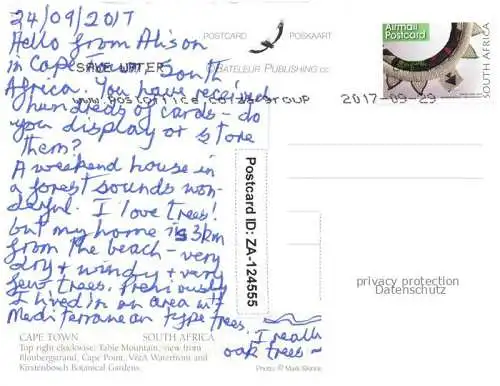 24/09/2017
Hello from Alison
in Cape Town, South
Africa. You have received
hundreds of cards - do
you display or store
them?
A weekend house in
a forest sounds won-
derful. I love trees!
but my home is 3km
from the beach - very
dry + windy + very
few trees. Previously
I lived in an area wit
Mediterranean type trees. I really
oak trees ~
POSTCARD POSKAART
BATELEUR PUBLISHING CC
SAVE WATER
www.postoffice.co.za group 2017-09-29
Airmail
Postcard
SOUTH AFRICA
Postcard ID: ZA-124555
privacy protection
Datenschutz
CAPE TOWN SOUTH AFRICA
Top right clockwise: Table Mountain, view from
Bloubergstrand, Cape Point, V&A Waterfront and
Kirstenbosch Botanical Gardens.
Photo: © Mark Skinner